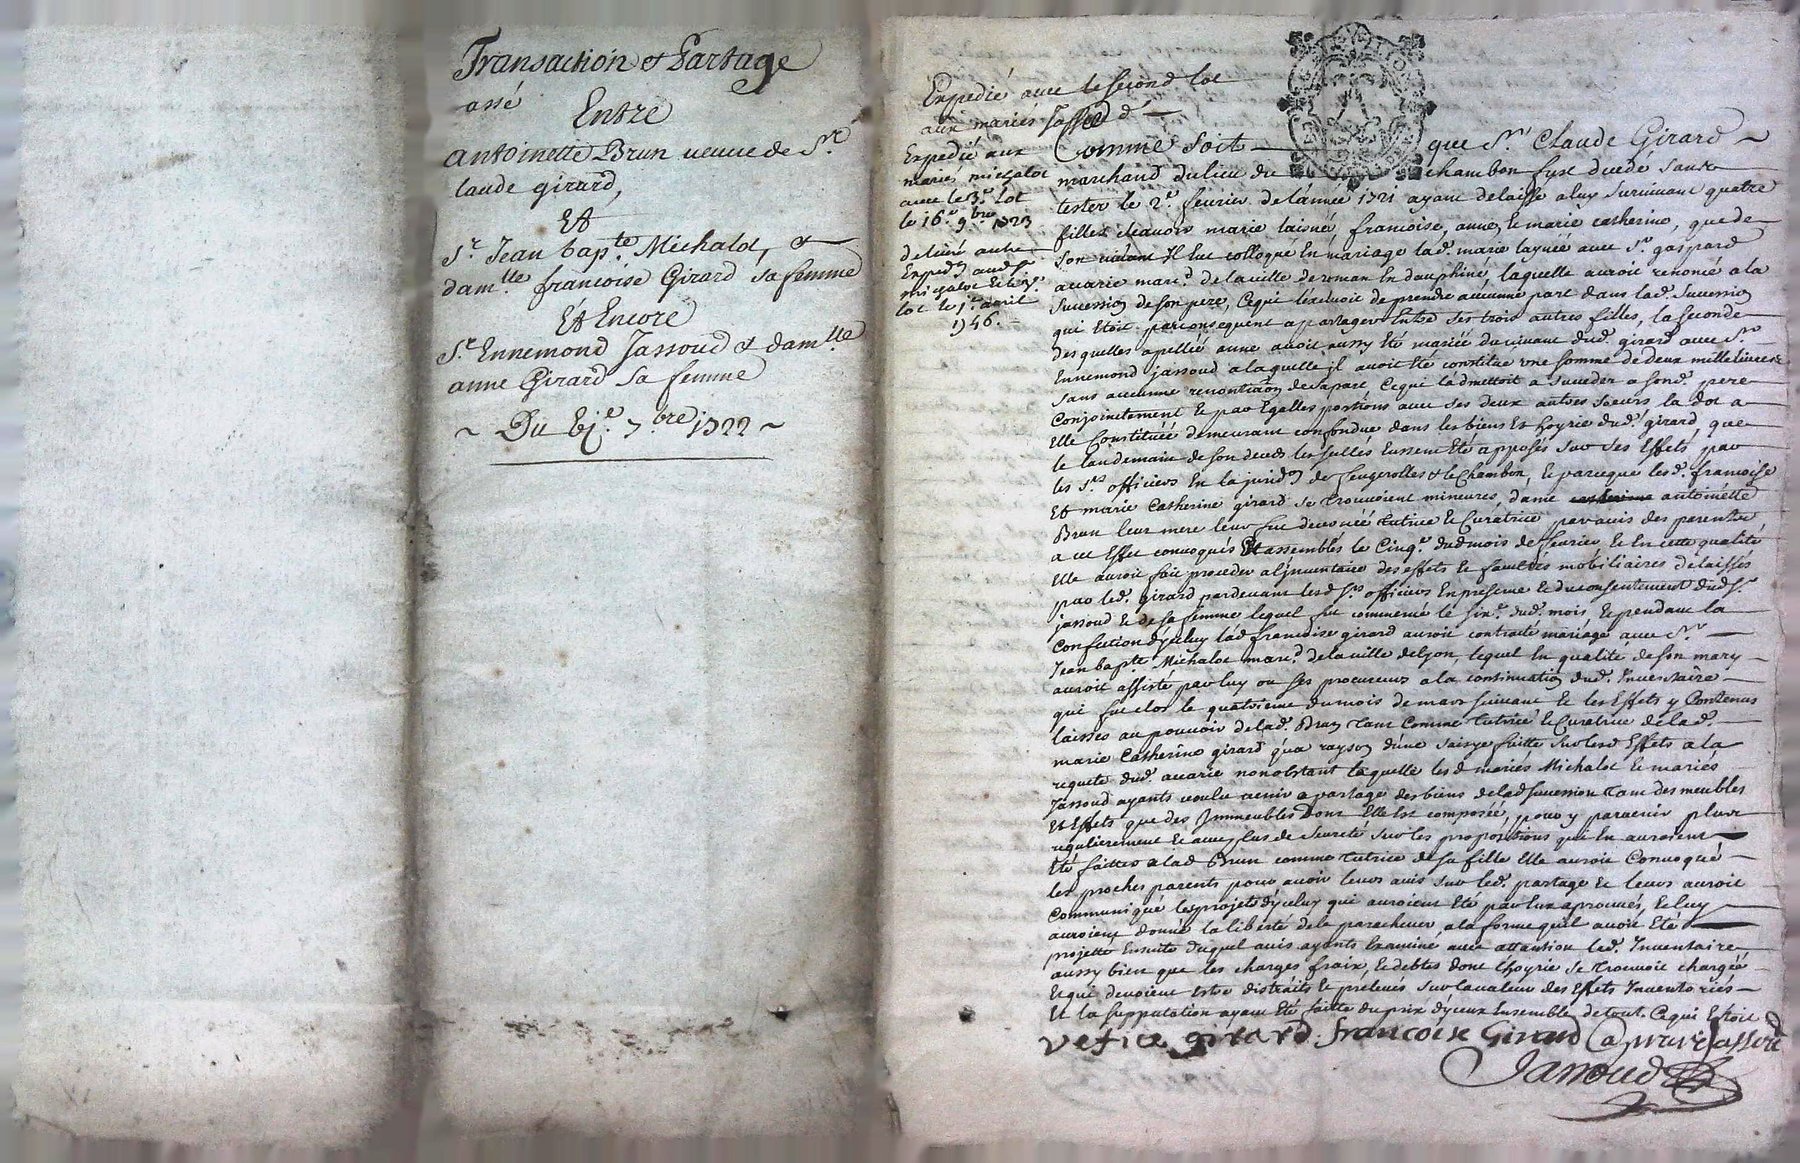 Transaction et Partage
assé
Entre
antoinette Brun veuve de Sr
laude girard,
Et
Sr Jean bapte. Michalot, et
damlle francoise Girard sa femme
Et Encore
Sr. Ennemond Jassoud et damlle
anne Girard sa femme
~ Du 7bre 1722 ~
Expedié avec le second lot
aux mariés Jassoud
Expedié aux
mariés michalot
avec le 3e. lot
le 16e 9bre 1723
delivré autre
lot le 1er avril
1746.
Comme soit que Sr. Claude Girard ~
marchand du lieu du chambon fust decedé sans
tester le 2e. fevrier de l'année 1721 ayant delaissé a luy survivant quatre
filles scavoir marie laisnée, francoise, anne, & marie catherine, que de
son vivant Il eut colloqué En mariage lad. marie laynée avec Sr gaspard
avarie marcd. de la ville de roman En dauphiné, laquelle auroit renoncé a la
succession de son pere, Ce qui l'excluoit de prendre aucunne part dans lad. succession
qui Etoit par consequent a partager Entre ses trois autres filles, la seconde
desquelles apellée anne avoit aussy Eté mariée du vivant dud. girard avec Sr
Ennemond jassoud a laquelle il avoit Eté constitué une somme de deux mille livres
sans aucunne renontiaon de sa part Ce qui l'admettoit a succeder a sond. pere
Conjointement & par Egalles portions avec ses deux autres soeurs la dot a
Elle Constituée demeurant confondue dans les biens & hoyrie dud. girard, que
le landemain de son deceds les scellés Eussent Eté apposés sur ses Effets par
les Srs officiers En la juridon de feugerolles & le Chambon, & parceque lesd. francoise
Et marie Catherine girard se trouvoient mineures, dame antoinette
Brun leur mere leur fut decernée tutrice & Curatrice par avis des parents
a cet Effet convoqués Et assemblés le Cinqe. dud mois de fevrier & En cette qualité
Elle auroit fait proceder a l'jnventaire des effets & facultés mobiliaires delaissés
par led. girard pardevant lesd Srs officiers En presence & du consentement dud Sr
jassoud & de sa femme lequel fut commencé le sixe. dud. mois & pendant la
Confection d'yceluy lad francoise girard auroit contracté mariage avec Sr.
Jean bapte Michalot marcd. de la ville de lyon, lequel En qualité de son mary
auroit assisté par luy ou ses procureurs a la continuation dud. Inventaire
qui fut clos le quatrieme du mois de mars suivant & les Effets y Contenus
laissés au pouvoir de lad. Brun tant comme tutrice & Curatrice de lad.
marie Catherine girard qu'a rayson d'une saisye faitte sur lesd Effets a la
requete dud. avarie nonobstant laquelle lesd mariés Michalot & mariés
Jassoud ayants voulu venir a partage des biens de lad succession tant des meubles
Et Effets que des Jmmeubles Dont Elle Est composée, pour y parvenir plus
regulierement & avec plus de seureté sur les propositions qui En auroient
Eté faittes a lad Brun comme tutrice de sa fille Elle auroit Convoqué
les proches parents pour avoir leurs avis sur led. partage & leurs auroit
Communiqué les projets d'yceluy qui auroient Eté par Eux aprouvés, & luy
auroient donné la liberté de le parachever a la forme qu'il avoit Eté
projetté Ensuite duquel avis ayants Examiné avec attantion led. Inventaire
aussy bien que les charges fraix, & debtes dont l'hoyrie se trouvoit chargée
Et qui devoient Estre distraits & prelevés sur la valeur des Effets Inventoriés
Et la supputation ayant Eté faitte du prix d'yceux Ensemble de tout Ce qui Estoit
girard. francoise Girard
Jassoud